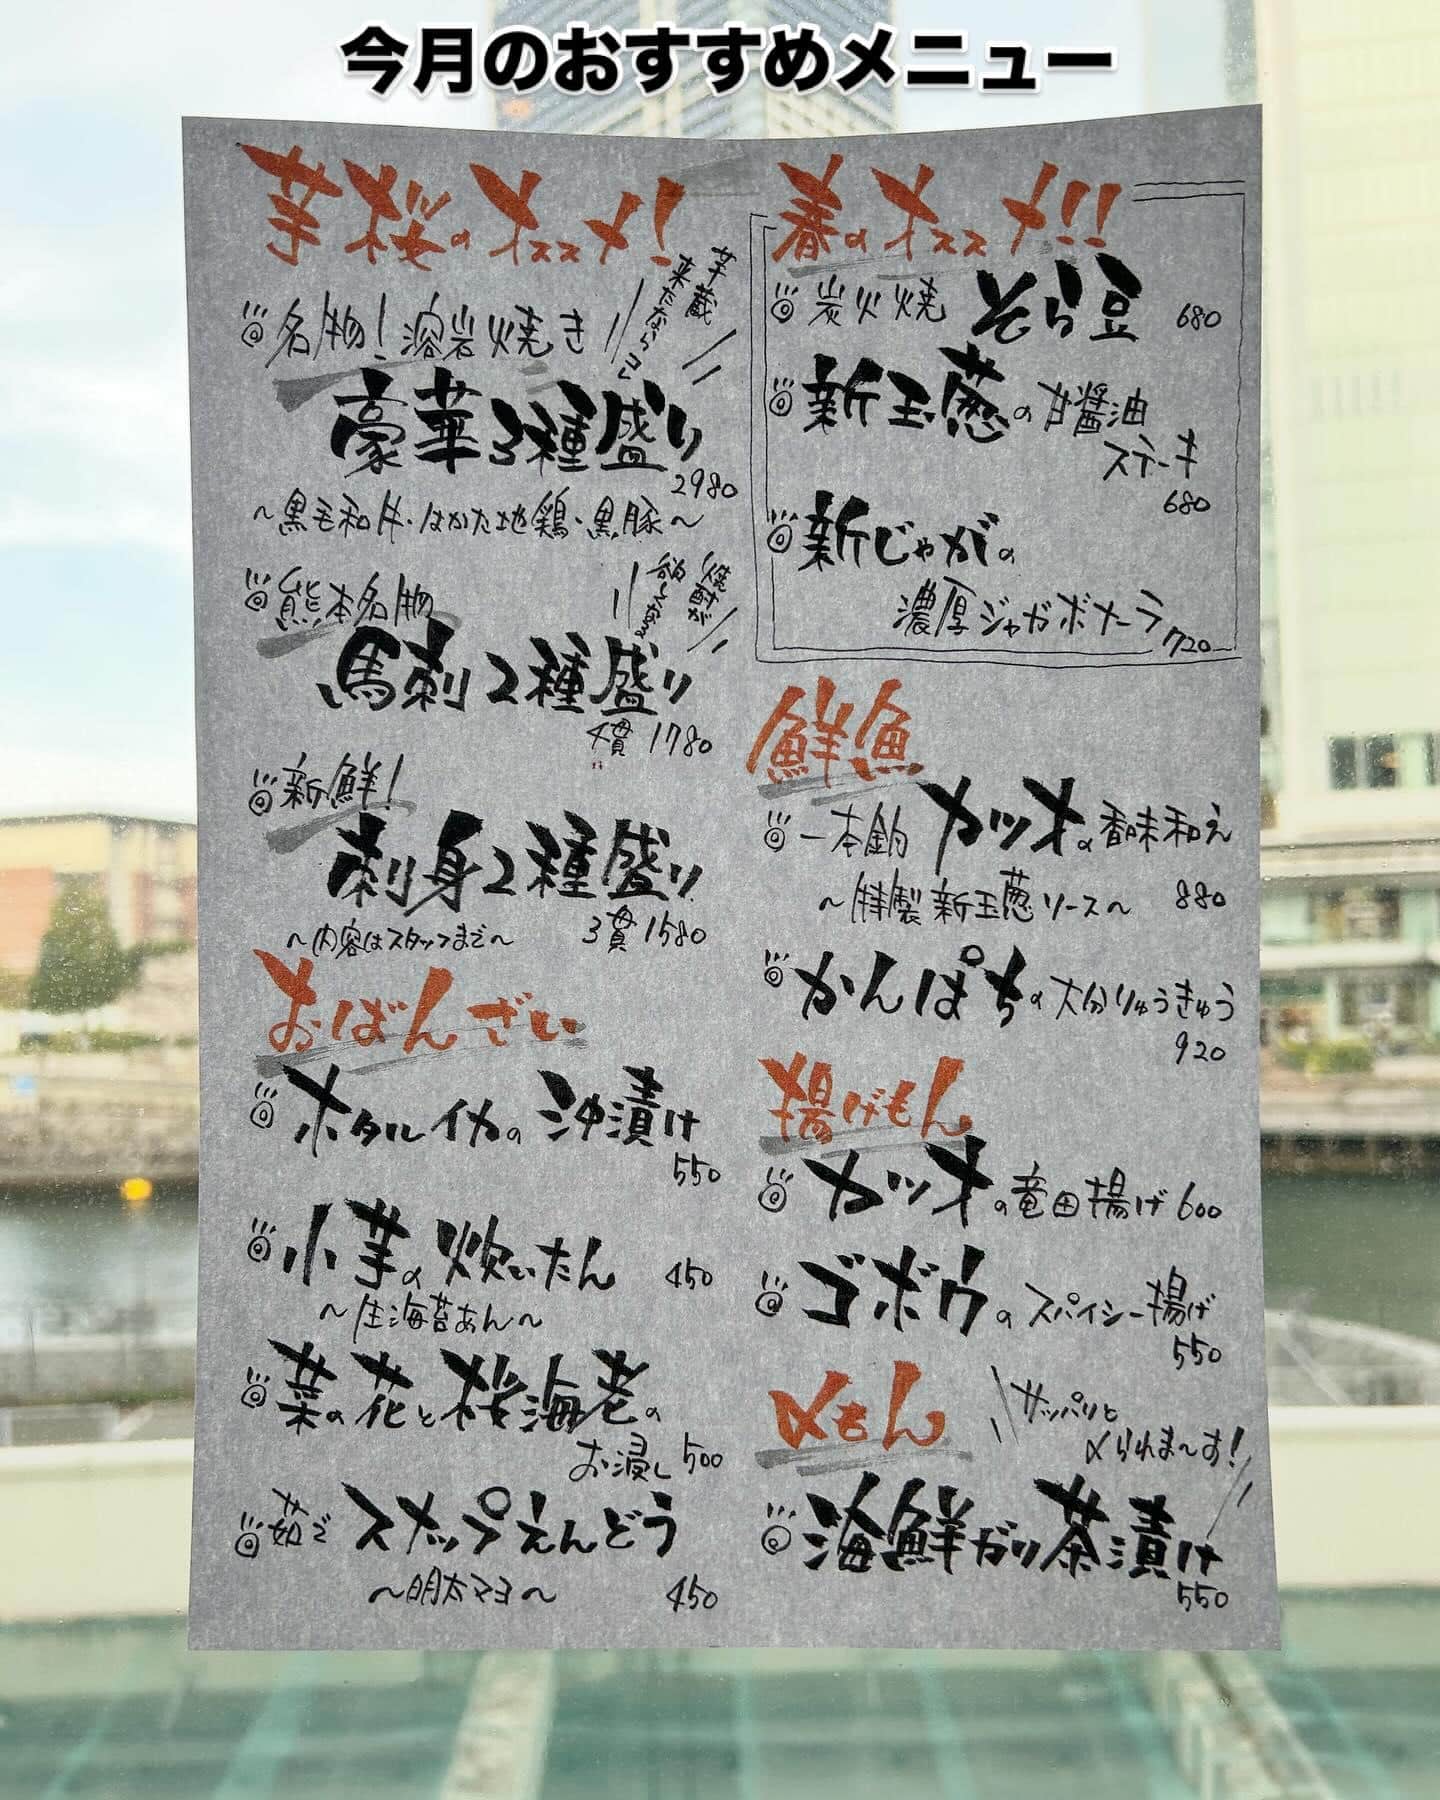 今月のおすすめメニュー
芋桜のオススメ!
芋蔵
来たならコレ
名物!溶岩焼き
豪華3種盛り
2980
~黒毛和牛・はかた地鶏・黒豚~
焼酎が
欲しくなる
熊本名物
馬刺2種盛り
4貫 1780
新鮮!
刺身2種盛り
~内容はスタッフまで~ 3貫 1580
おばんざい
ホタルイカの沖漬け
550
小芋の炊いたん 450
~生海苔あん~
菜の花と桜海老の
お浸し 500
茹で スナップえんどう
~明太マヨ~ 450
春のオススメ!!
炭火焼 そら豆 680
新玉葱の甘醤油
ステーキ
680
新じゃがの
濃厚ジャガボナーラ
720
鮮魚
一本釣 カツオの香味和え
~特製新玉葱ソース~ 880
かんぱちの大分りゅうきゅう
920
揚げもん
カツオの竜田揚げ 600
ゴボウのスパイシー揚げ
550
〆もん
サッパリと
〆られま~す!
海鮮ガリ茶漬け
550